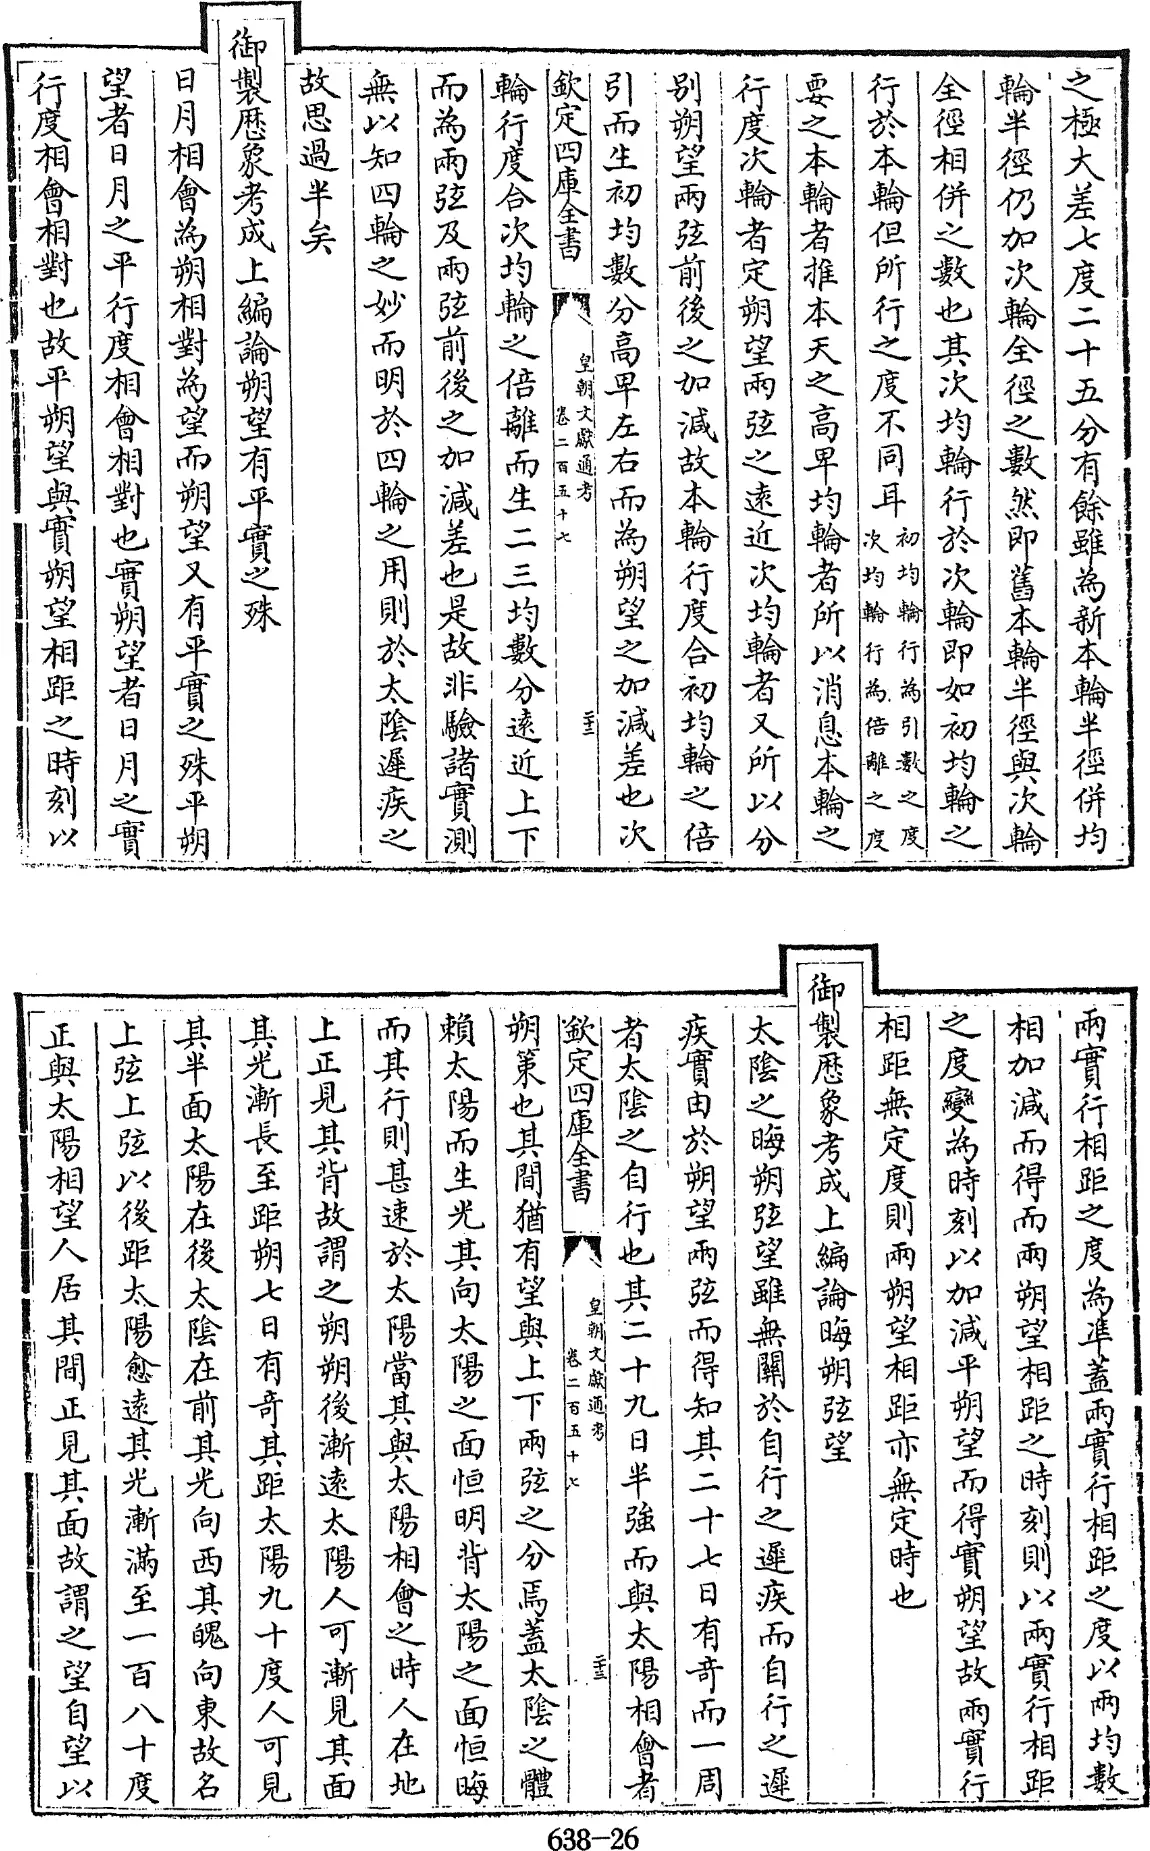 之極大差七度二十五分有餘雖為新本輪半徑併均
輪半徑仍加次輪全徑之數然即舊本輪半徑與次輪
全徑相併之數也其次均輪行於次輪即如初均輪之
行於本輪但所行之度不同耳初均輪行為引數之度
次均輪行為倍離之度
要之本輪者推本天之高卑均輪者所以消息本輪之
行度次輪者定朔望兩弦之遠近次均輪者又所以分
別朔望兩弦前後之加減故本輪行度合初均輪之倍
引而生初均數分高卑左右而為朔望之加減差也次
欽定四庫全書
皇朝文獻通考
卷二百五十七
二十二
輪行度合次均輪之倍離而生二三均數分遠近上下
而為兩弦及兩弦前後之加減差也是故非驗諸實測
無以知四輪之妙而明於四輪之用則於太陰遲疾之
故思過半矣
御製歷象考成上編論朔望有平實之殊
日月相會為朔相對為望而朔望又有平實之殊平朔
望者日月之平行度相會相對也實朔望者日月之實
行度相會相對也故平朔望與實朔望相距之時刻以
兩實行相距之度為準蓋兩實行相距之度以兩均數
相加減而得而兩朔望相距之時刻則以兩實行相距
之度變為時刻以加減平朔望而得實朔望故兩實行
相距無定度則兩朔望相距亦無定時也
御製歷象考成上編論晦朔弦望
太陰之晦朔弦望雖無關於自行之遲疾而自行之遲
疾實由於朔望兩弦而得知其二十七日有奇而一周
者太陰之自行也其二十九日半強而與太陽相會者
欽定四庫全書
皇朝文獻通考
卷二百五十七
二十三
朔策也其間猶有望與上下兩弦之分焉蓋太陰之體
賴太陽而生光其向太陽之面恒明背太陽之面恒晦
而其行則甚速於太陽當其與太陽相會之時人在地
上正見其背故謂之朔朔後漸遠太陽人可漸見其面
其光漸長至距朔七日有奇其距太陽九十度人可見
其半面太陽在後太陰在前其光向西其魄向東故名
上弦上弦以後距太陽愈遠其光漸滿至一百八十度
正與太陽相望人居其間正見其面故謂之望自望以
638-26